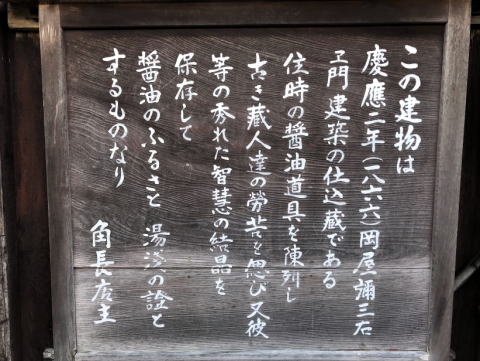 この建物は
慶應二年(一八六六)岡屋彌三右
ヱ門建築の仕込蔵である
往時の醤油道具を陳列し
古き蔵人達の労苦を偲び又彼
等の秀れた智慧の結晶を
保存して
醤油のふるさと 湯浅の證と
するものなり
角長店主